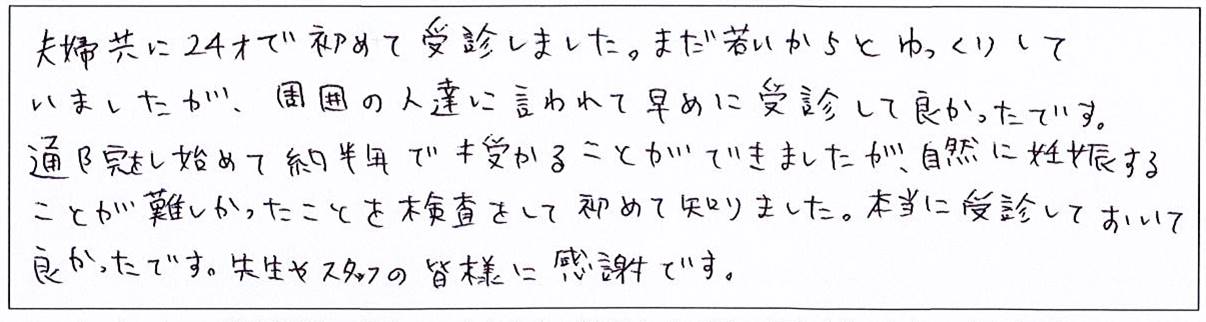 夫婦共に24才で初めて受診しました。まだ若いからとゆっくりして
いましたが、周囲の人達に言われて早めに受診して良かったです。
通院をし始めて約半年で授かることができましたが、自然に妊娠する
ことが難しかったことを検査をして初めて知りました。本当に受診しておいて
良かったです。先生やスタッフの皆様に感謝です。